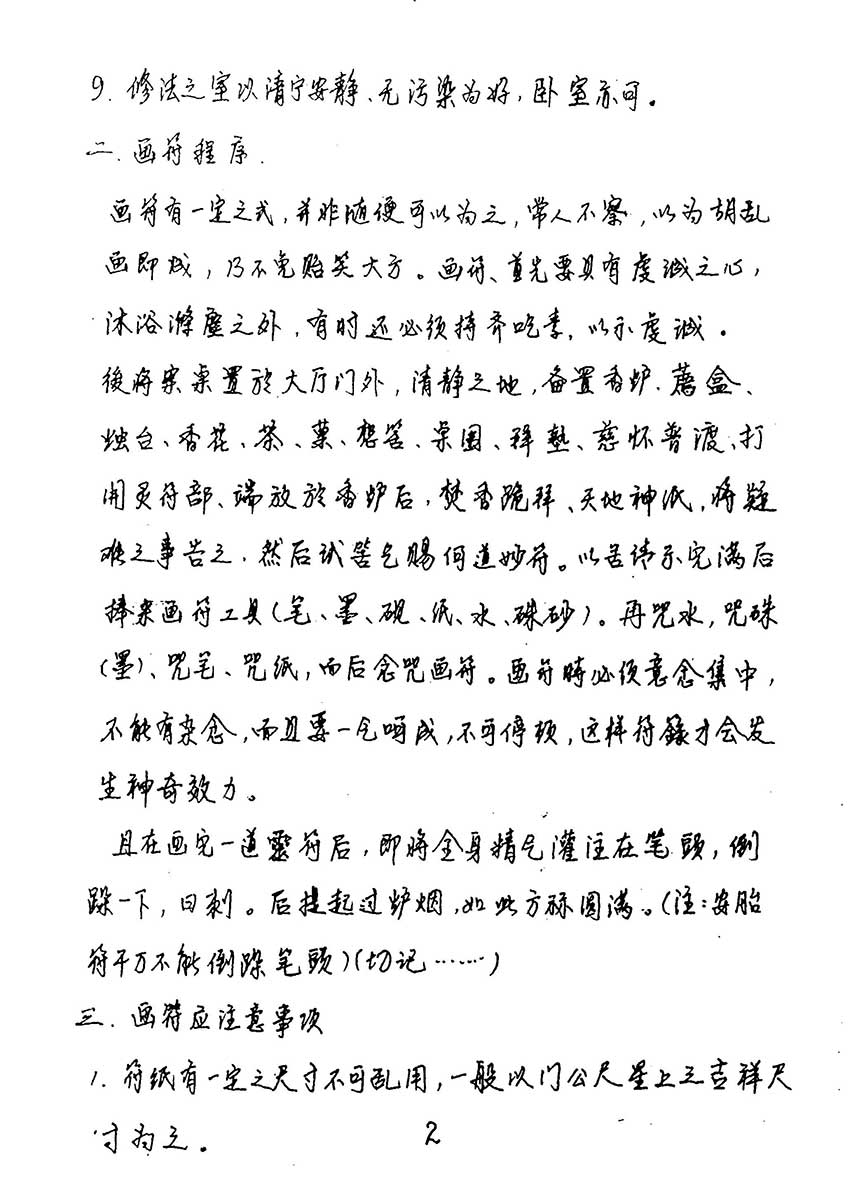 9. 修法之室以清宁安静、无污染为好，卧室亦可。
二. 画符程序.
画符有一定之式，并非随便可以为之，常人不察，以为胡乱
画即成，乃不免贻笑大方。画符、首先要具有虔诚之心，
沐浴滌塵之外，有时还必须持齐吃素，以示虔诚。
後将案桌置於大厅门外，清静之地，备置香炉、薦盒、
烛台、香花、茶、菓、、桌围、拜墊、慈怀普渡、打
开灵符部、端放於香炉后，焚香跪拜、天地神祇，将疑
难之事告之，然后试筶乞赐何道妙符。以筶示完满后
捧来画符工具(笔、墨、砚、纸、水、硃砂)。再咒水，咒硃
(墨)、咒笔、咒纸，而后念咒画符。画符時必须意念集中，
不能有杂念，而且要一气呵成，不可停顿，这样符籙才会发
生神奇效力。
且在画完一道靈符后，即将全身精气灌注在笔頭，倒
跺一下，曰刺。后提起过炉烟，如此方称圆满。(注：安胎
符千万不能倒跺笔頭)(切记……)
三. 画符应注意事项
1. 符纸有一定之尺寸不可乱用，一般以门公尺星上之吉祥尺
寸为之。
2